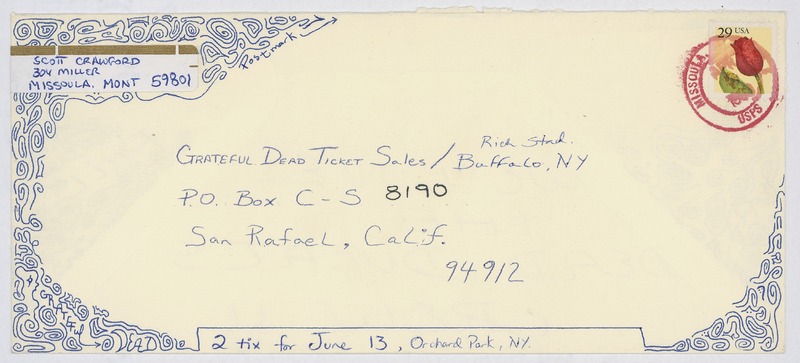 SCOTT CRAWFORD
304 MILLER
MISSOULA, MONT 59801
Postmark
29 USA
MISSOULA,
USPS
GRATEFUL DEAD TICKET SALES / Rich Stad.
Buffalo, NY
P.O. Box C-S 8190
San Rafael, Calif.
94912
GRATEFUL
DEAD
2 tix for June 13, Orchard Park, NY.